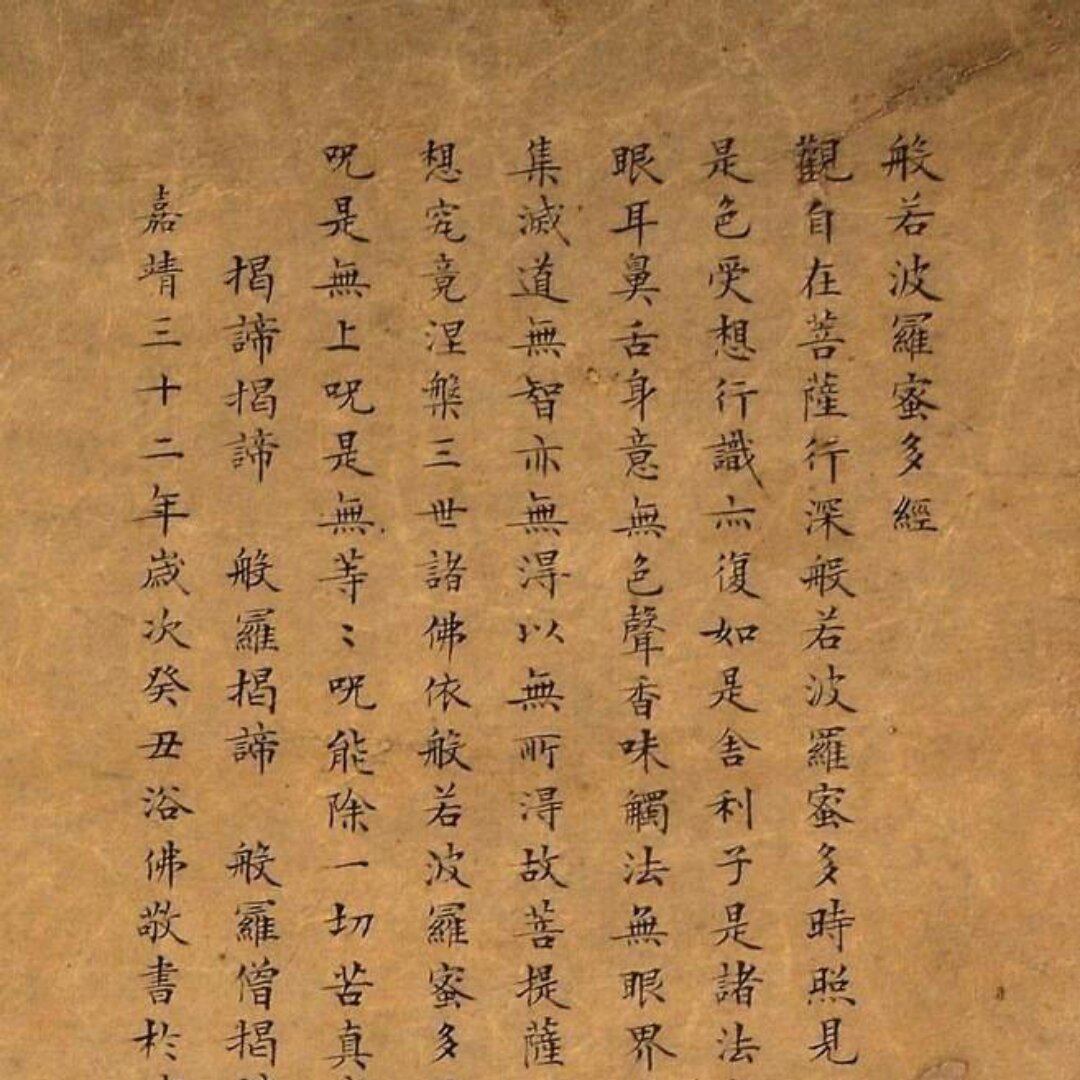 般若波羅蜜多經
觀自在菩薩行深般若波羅蜜多時照見
是色受想行識亦復如是舍利子是諸法
眼耳鼻舌身意無色聲香味觸法無眼界
集滅道無智亦無得以無所得故菩提薩
想究竟涅槃三世諸佛依般若波羅蜜多
呪是無上呪是無等〻呪能除一切苦真
揭諦揭諦 般羅揭諦 般羅僧揭
嘉靖三十二年歲次癸丑浴佛敬書於